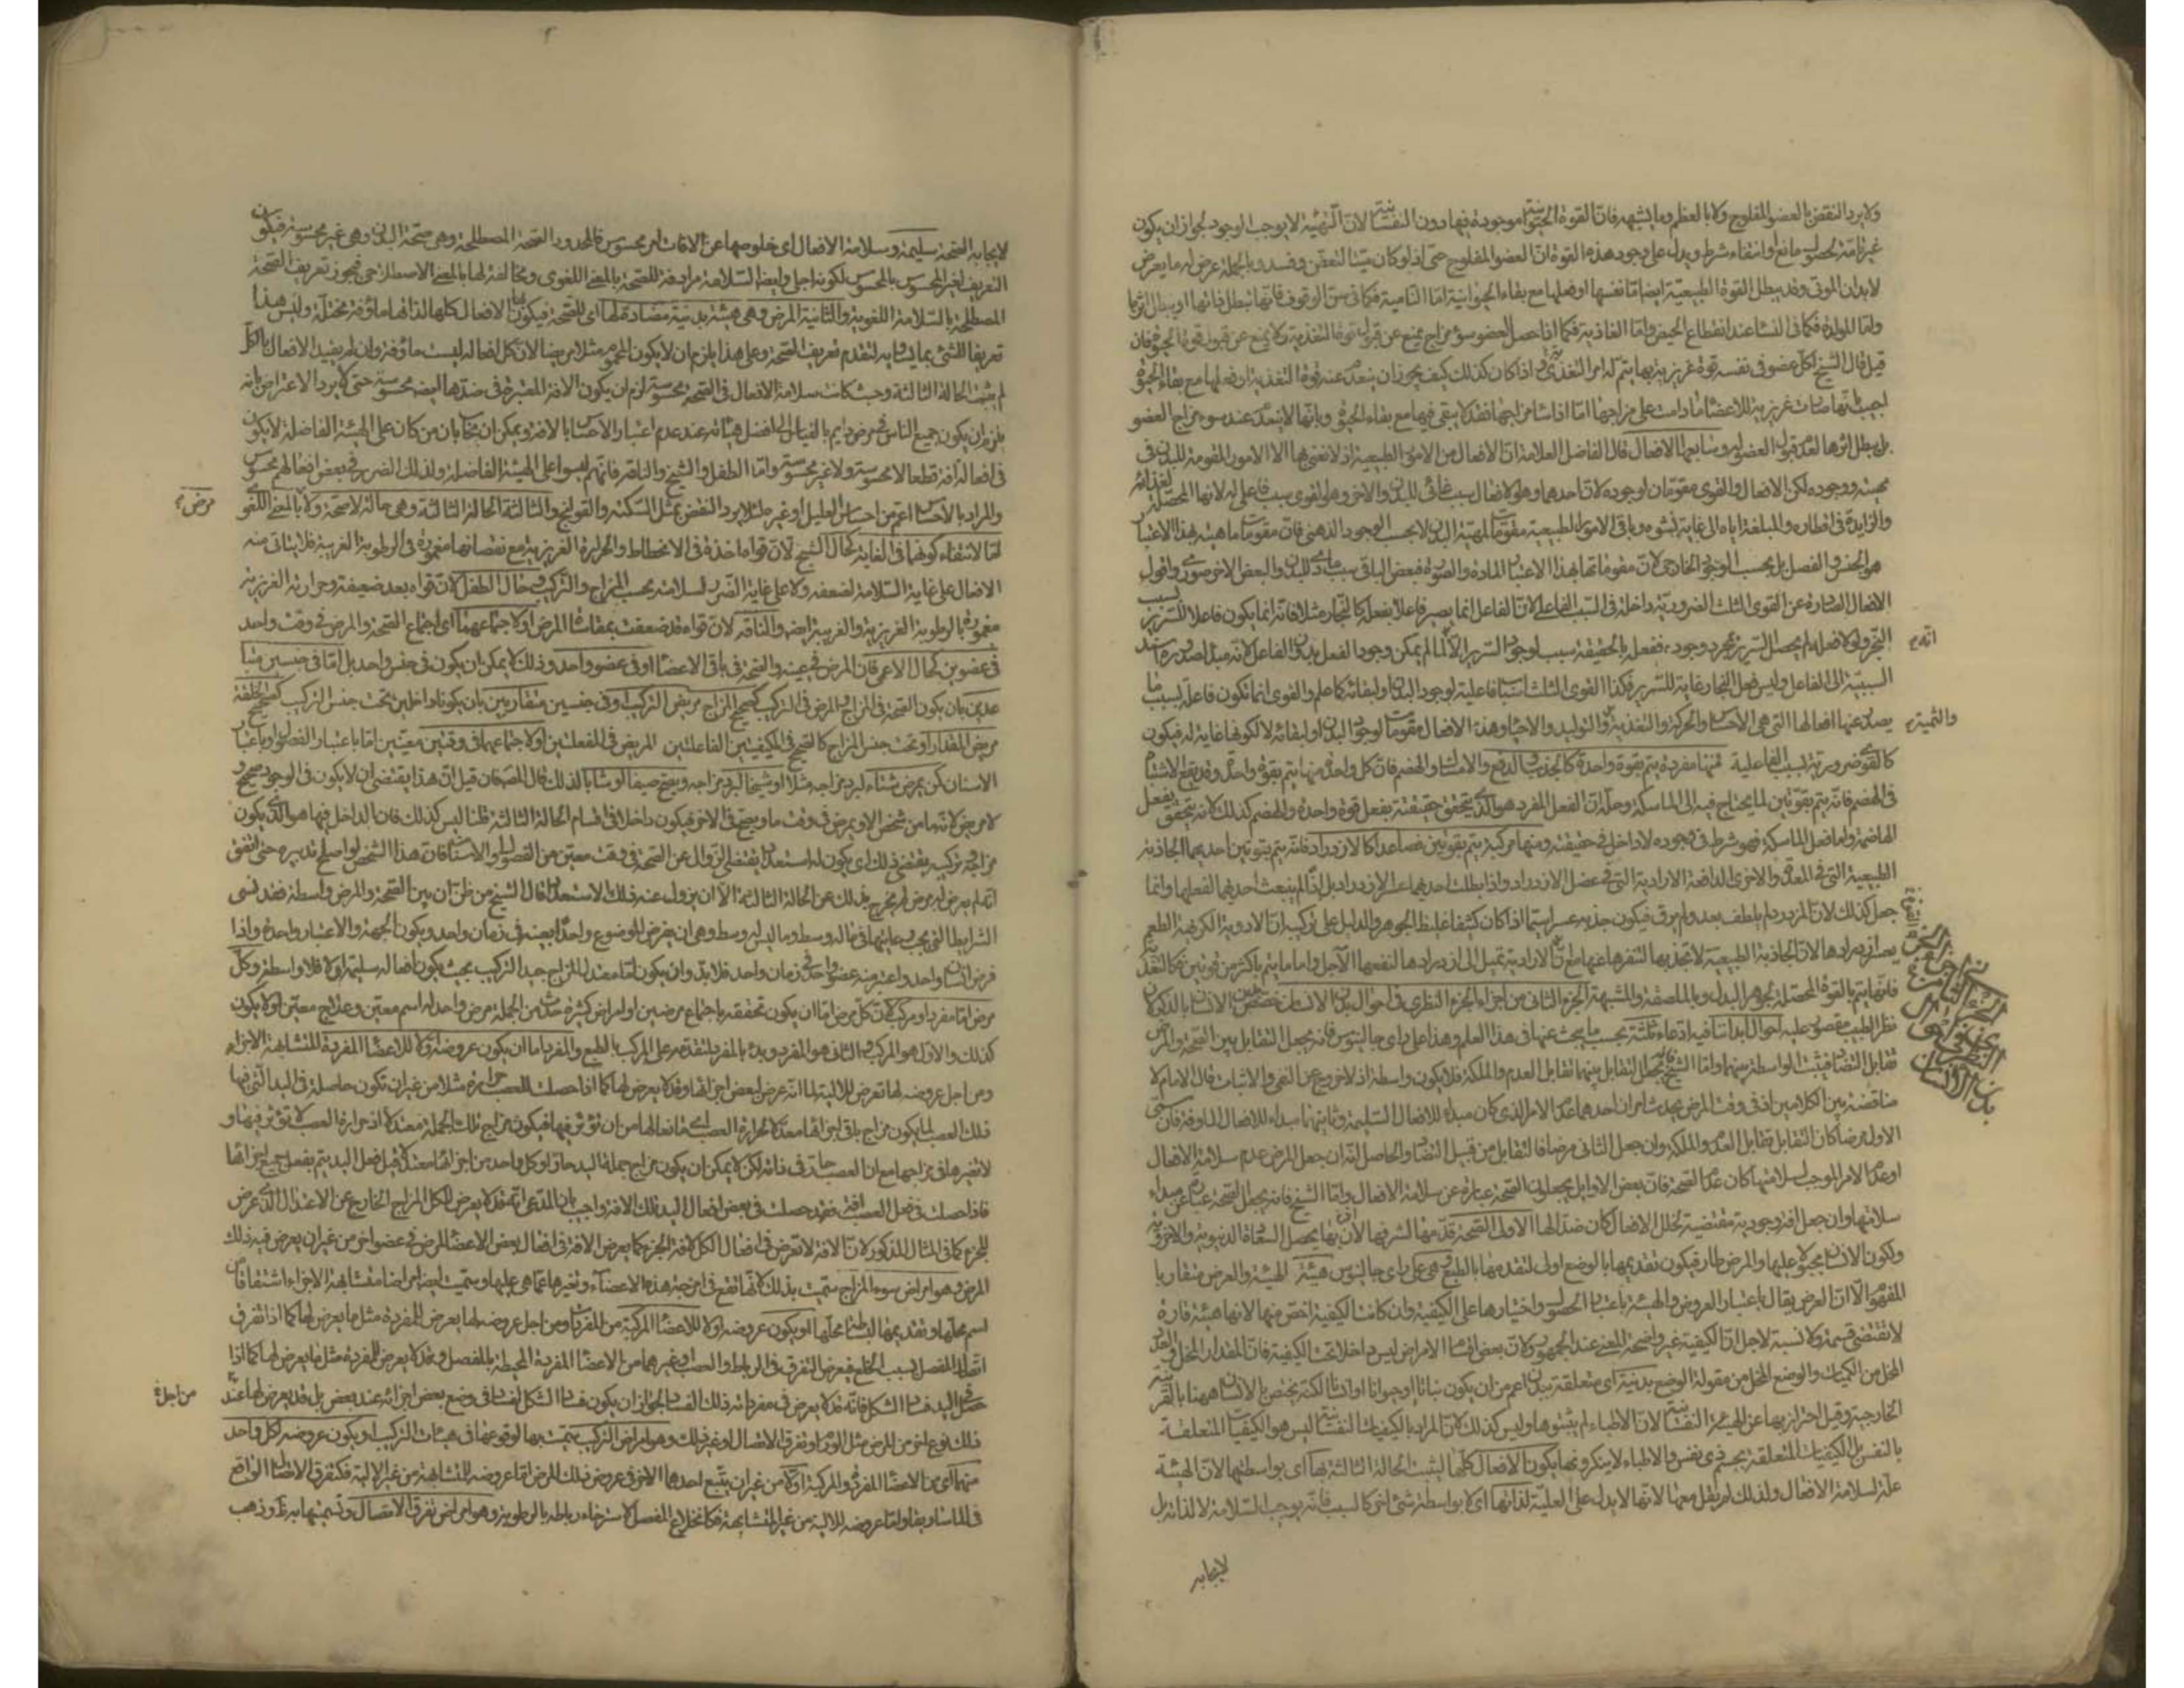 ولا يرد النقض بالعضو المفلوج ولا بالعظم وما يشبهه فان القوة الحيوانية موجودة فيها دون النفسانية لان التهيئة لا يوجب الوجود لجواز ان يكون
غير تامة لحصول مانع او انتفاء شرط ويدل على وجود هذه القوة ان العضو المفلوج حى اذ لو كان ميتا لتعفن وفسد وبالجملة عرض له ما يعرض
لابدان الموتى وقد يبطل القوة الطبيعية ايضا اما نفسها او فعلها مع بقاء الحيوانية اما النامية فكما فى سن الوقوف فانها تبطل
واما المولدة فكما فى النساء عند انقطاع الحيض واما الغاذية فكما اذا حصل لعضو سوء مزاج يمنع عن قبول قوة التغذية ولا يمنع عن قبول قوة الحيوة فان
قيل قال الشيخ لكل عضو فى نفسه قوة غريزية بها يتم له امر التغذى واذا كان كذلك كيف يجوز ان ينعدم عنه قوة التغذية او فعلها مع بقاء الحيوة
اجيب بانها صارت غريزية للاعضاء ما دامت على مزاجها اما اذا ساء مزاجها فقد لا يبقى فيها مع بقاء الحيوة وبانها لا ينعدم عند سوء مزاج العضو
بل يبطل اثرها لعدم قبول العضو له وسابعها الافعال قال الفاضل العلامة ان الافعال من الامور الطبيعية اذ لا نعنى بها الا الامور المقومة للبدن فى
مهيته ووجوده لكن الافعال والقوى مقومتان لوجوده لان احدهما وهو الافعال سبب غائى للبدن والاخر وهو القوى سبب فاعلى له لانها المحصلة لغذائه
والزايدة فى اقطاره والمبلغة اياه الى غاية نشوه وباقى الامور الطبيعية مقومات لمهية البدن لا بحسب الوجود الذهنى فان مقومات ماهيته بهذا الاعتبار
هو الجنس والفصل بل بحسب الوجود الخارجى لان مقوماتها بهذا الاعتبار المادة والصورة فبعض الباقى سبب مادى للبدن والبعض الاخر صورى واقول
الافعال الصادرة عن القوى الثلث الضرورية داخلة فى السبب الفاعلى لان الفاعل انما يصير فاعلا بفعله كالنجار مثلا فانه انما يكون فاعلا للسرير بسبب
النجر ولولا فعله لم يحصل السرير بمجرد وجوده ففعله بالحقيقة سبب لوجود السرير الا لما لم يمكن وجود الفعل بدون الفاعل لانه مبدأ صدوره
السببية الى الفاعل وليس فعل النجار غاية للسرير فكذا القوى الثلث اسباب فاعلية لوجود البدن او لبقائه كما علم والقوى انما تكون فاعلة بسبب ما
يصدر عنها افعالها التى هى الاحساس والحركة والتغذية والتوليد والاحياء وهذه الافعال مقومات لوجود البدن او لبقائه لا لكونها غاية له فيكون
كالقوى ضرورية بسبب الفاعلية فمنها مفردة يتم بقوة واحدة كالجذب والدفع والامساك والهضم فان كل واحدة منها يتم بقوة واحدة وقد يقع الاشتباه
فى الهضم فانه يتم بقوتين لما يحتاج فيه الى الماسكة وحله ان الفعل المفرد هو الذى يتحقق حقيقته بفعل قوة واحدة والهضم كذلك لانه يتحقق بفعل
الهاضمة واما فعل الماسكة فهو شرط فى وجوده لا داخل فى حقيقته ومنها مركبة يتم بقوتين فصاعدا كالازدراد فانه يتم بقوتين احديهما الجاذبة
الطبيعية التى فى المعدة والاخرى الدافعة الارادية التى فى عضل الازدراد واذا بطلت احديهما عسر الازدراد بل اذا لم ينبعث احديهما لفعلها وانما
جعل كذلك لان المزدرد لم يلطف بعد ولم يرق فيكون جذبه عسرا سيما اذا كان كثيفا غليظ الجوهر والدليل على تركبه ان الادوية الكريهة الطعم
يعسر ازدرادها لان الجاذبة الطبيعية لا تجذبها لتنفرها عنها مع ان الارادية تميل الى ازدرادها لنفعها الآجل واما ما يتم باكثر من قوتين فكالتغذية
فانها يتم بالقوة المحصلة لجوهر البدل وبالملصقة والمشبهة الجزء الثانى من اجزاء الجزء النظرى فى احوال بدن الانسان خصص الانسان بالذكر لان
نظر الطبيب مقصور عليه احوال ابداننا فيه ادعاء ثلثة بحسب ما يبحث عنها فى هذا العلم وهذا على راى جالينوس فانه يجعل التقابل بين الصحة والمرض
تقابل التضاد فيثبت الواسطة بينهما واما الشيخ فانه يجعل التقابل بينهما تقابل العدم والملكة فلا يكون واسطة اذ لا خروج عن النفى والاثبات قال الامام لا
مناقضة بين الكلامين اذ فى وقت المرض يحدث امران احدهما عدم الامر الذى كان مبداء للافعال السليمة وثانيهما مبداء للافعال الماوفة فان سمى
الاول مرضا كان التقابل تقابل العدم والملكة وان جعل الثانى مرضا فالتقابل من قبيل التضاد والحاصل انه ان جعل المرض عدم سلامة الافعال
او عدم الامر الموجب لسلامتها كان عدم الصحة فان بعض الاوايل يجعلون الصحة عبارة عن سلامة الافعال واما الشيخ فانه يجعل الصحة عبارة عن مبداء
سلامتها وان جعل آفة وجودية مقتضية لخلل الافعال كان ضدا لها الاولى الصحة قدمها لشرفها لان بها يحصل السعادة الدنيوية والاخروية
ولكون الانسان مجبولا عليها والمرض طار فيكون تقديمها بالوضع اولى لتقدمها بالطبع وهى على راى جالينوس هيئة الهيئة والعرض متقاربا
المفهوم الا ان العرض يقال باعتبار العروض والهيئة باعتبار الحصول واختيارها على الكيفية وان كانت الكيفية اخص منها لانها هيئة قارة
لا تقتضى قسمة ولا نسبة لاجل ان الكيفية غير واضحة المعنى عند الجمهور ولان بعض اقسام الامراض ليس داخلا تحت الكيفية فان المقدار المخل والعدد
المخل من الكميات والوضع المخل من مقولة الوضع بدنية اى متعلقة ببدن اعم من ان يكون نباتا او حيوانا او انسانا لكنه يختص بالانسان ههنا بالقرينة
الخارجية وقيل احترز بها عن الهيئة النفسانية لان الاطباء لم يثبتوها وليس كذلك لان المراد بالكيفيات النفسانية ليس هو الكيفيات المتعلقة
بالنفس بل الكيفيات المتعلقة بجسم ذى نفس والاطباء لا ينكرونها يكون الافعال كلها ليثبت الحالة الثالثة بها اى بواسطتها لان الهيئة
علة لسلامة الافعال ولذلك لم يقل معها لانها لا يدل على العلية لذاتها اى لا بواسطة شئ اخر كالسبب فانه يوجب السلامة لا لذاته بل
الجزء الثانى من اجزاء الجزء النظرى فى احوال بدن الانسان
والتنمية
لايجابه الصحة سليمة وسلامة الافعال اى خلوصها عن الافات امر محسوس فالمحدود الصحة المصطلحة وهى صحة البدن وهى غير محسوسة فيكون
التعريف لغير المحسوس بالمحسوس لكونه اجلى وايضا السلامة مرادفة للصحة بالمعنى اللغوى ومخالفة لها بالمعنى الاصطلاحى فيجوز تعريف الصحة
المصطلحة بالسلامة اللغوية والثانية المرض وهى هيئة بدنية مضادة لها اى للصحة فيكون بها الافعال كلها لذاتها ماؤفة مختلة وليس هذا
تعريفا للشئ بما يساويه لتقدم تعريف الصحة وعلى هذا يلزم ان لا يكون المحموم مثلا مريضا لان كل افعاله ليست ماؤفة وان لم يقيد الافعال بالكل
لم يثبت الحالة الثالثة وحيث كانت سلامة الافعال فى الصحة محسوسة لزم ان يكون الافة المعتبرة فى ضدها ايضا محسوسة حتى لا يرد الاعتراض بانه
يلزم ان يكون جميع الناس فى مرض دايم بالقياس الى افضل هيئاته عند عدم اعتبار الاحساس بالافة ويمكن ان يجاب بان من كان على الهيئة الفاضلة لا يكون
فى افعاله آفة قطعا لا محسوسة ولا غير محسوسة واما الطفل والشيخ والناقه فانهم ليسوا على الهيئة الفاضلة ولذلك الضرر فى بعض افعالهم محسوس
والمراد بالاحساس اعم من احساس العليل او غيره لئلا يرد النقض بمثل السكتة والقولنج والثالثة الحالة الثالثة وهى حالة لا صحة ولا مرض بالمعنى اللغوى
اما لانتفاء كونهما فى الغاية كحال الشيخ لان قواه اخذة فى الانحطاط والحرارة الغريزية مع نقصانها مغمورة فى الرطوبة الغريبة فلا يتاتى منه
الافعال على غاية السلامة لضعفه ولا على غاية الضرر لسلامته بحسب المزاج والتركيب وحال الطفل لان قواه بعد ضعيفة وحرارته الغريزية
مغمورة بالرطوبة الغريزية والغريبة ايضا والناقه لان قواه قد ضعفت بمقاساة المرض او لاجتماعهما اى اجتماع الصحة والمرض فى وقت واحد
فى عضوين كحال الاعمى فان المرض فى عينه والصحة فى باقى الاعضاء او فى عضو واحد وذلك لا يمكن ان يكون فى جنس واحد بل اما فى جنسين متباعدين
بان يكون الصحة فى المزاج والمرض فى التركيب كصحيح المزاج مريض التركيب او فى جنسين متقاربين بان يكونا داخلين تحت جنس التركيب كصحيح الخلقة
مريض المقدار او تحت جنس المزاج كالصحيح فى الكيفيتين الفاعلتين المريض فى المنفعلتين او لاجتماعهما فى وقتين معينين اما باعتبار الفصول او باعتبار
الاسنان كمن يمرض شتاء لبرد مزاجه مثلا او شيخا لبرد مزاجه ويصح صيفا او شابا لذلك قال المصنف فان قيل ان هذا يقتضى ان لا يكون فى الوجود صحيح
ولا مريض لانه ما من شخص الا ويمرض فى وقت ما ويصح فى الاخر فيكون داخلا فى اقسام الحالة الثالثة قلنا ليس كذلك فان الداخل فيها هو الذى يكون
مزاجه وتركيبه يقتضى ذلك اى يكون له استعداد يقتضى الزوال عن الصحة فى وقت معين من الفصول او الاسنان فان هذا الشخص لو اصلح تدبيره حتى اتفق
انه لم يعرض له مرض لم يخرج بذلك عن الحالة الثالثة الا ان يزول عنه ذلك الاستعداد قال الشيخ من ظن ان بين الصحة والمرض واسطة فقد نسى
الشرايط التى يجب مراعاتها فى ما له وسط وما ليس له وسط وهى ان يفرض الموضوع واحدا بعينه فى زمان واحد ويكون الجهة والاعتبار واحدة واذا
فرض انسان واحد واعتبر منه عضو واحد فى زمان واحد فلا بد وان يكون اما معتدل المزاج جيد التركيب بحيث يكون افعاله سليمة او لا فلا واسطة وكل
مرض اما مفرد او مركب لان كل مرض اما ان يكون تحققه باجتماع مرضين او امراض كثيرة حدث من الجملة مرض واحد له اسم معين وعلاج معين او لا يكون
كذلك والاول هو المركب والثانى هو المفرد وبدء بالمفرد لتقدمه على المركب بالطبع والمفرد اما ان يكون عروضه اولا للاعضاء المفردة المتشابهة الاجزاء
ومن اجل عروضه لها تعرض للالية لما انه عرض لبعض اجزائها وقد لا يعرض لها كما اذا حصلت للعصب حرارة مثلا من غير ان تكون حاصلة فى اليد التى فيها
ذلك العصب لما يكون مزاج باقى اجزائها معدلا لحرارة العصب
لا تغير هى فى مزاجها مع ان العصب حار فى ذاته لكن لا يمكن ان يكون مزاج جملة اليد حارا وكل واحد من اجزائها معتدلا
فاذا حصلت فى فعل العصب افة فقد حصلت فى بعض افعال اليد تلك الافة واجيب بان المدعى انه قد لا يعرض للكل المزاج الخارج عن الاعتدال الذى عرض
للجزء كما فى المثال المذكور لا ان الافة لا تعرض فى افعال الكل لافة الجزء
المرض وهو امراض سوء المزاج سميت بذلك لانها تقع فى امزجة هذه الاعضاء وتغيرها عما هى عليها وسميت ايضا امراضا متشابهة الاجزاء اشتقاقا من
اسم محلها وتقديمها لبساطة محلها او يكون عروضه اولا للاعضاء المركبة من المفردات ومن اجل عروضه لها يعرض للمفردة مثل ما يعرض لها كما اذا تفرق
اتصال المفصل بسبب الخلع فيعرض التفرق فى الرباط والعصب وغيرهما من الاعضاء المفردة المحيطة بالمفصل وقد لا يعرض للمفردة مثل ما يعرض لها كما اذا
حصل فى اليد فساد الشكل فانه قد لا يعرض فى مفرداته ذلك الفساد لجواز ان يكون فساد الشكل لفساد فى وضع بعض اجزائه عند بعض بل قد يعرض لها عند
ذلك نوع اخر من المرض مثل الورم وتفرق الاتصال او غير ذلك وهو امراض التركيب سميت بها لوقوعها فى هيئات التركيب او يكون عروضه لكل واحد
منهما اى من الاعضاء المفردة والمركبة اولا من غير ان يتبع احدهما الاخر فى عروض ذلك المرض اما عروضه للمتشابهة من غير الالية فكتفرق الاتصال الواقع
فى الساق واما عروضه للالية من غير المتشابهة فكانخلاع المفصل لاسترخاء رباطه بالرطوبة وهو امراض تفرق الاتصال وتسميتها به ظاهر وذهب
مرض
من اجل
لايجابه